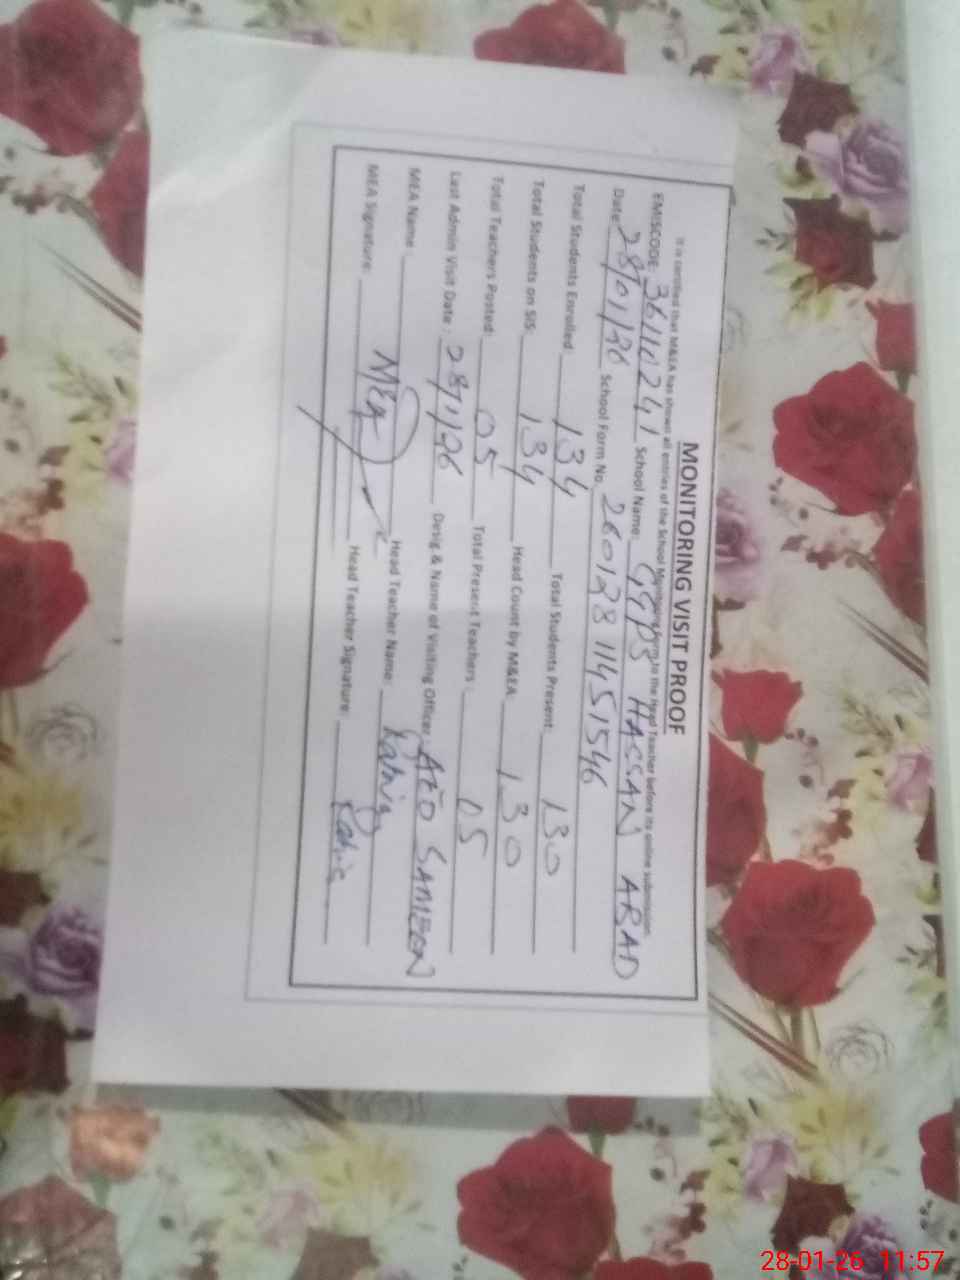 MONITORING VISIT PROOF
It is certified that M&EA has shown all entries of the School Monitoring form to the Head Teacher before its online submission
EMISCODE: 36110241 School Name: GGPS HASSAN ABAD
Date: 28/01/26 School Form No. 26012811451546
Total Students Enrolled: 134 Total Students Present: 130
Total Students on SIS: 134 Head Count by M&EA: 130
Total Teachers Posted: 05 Total Present Teachers: 05
Last Admin Visit Date: 28/1/26 Desig & Name of Visiting Officer: AEO
MEA Name: Head Teacher Name:
MEA Signature: MEA Head Teacher Signature:
28-01-26 11:57